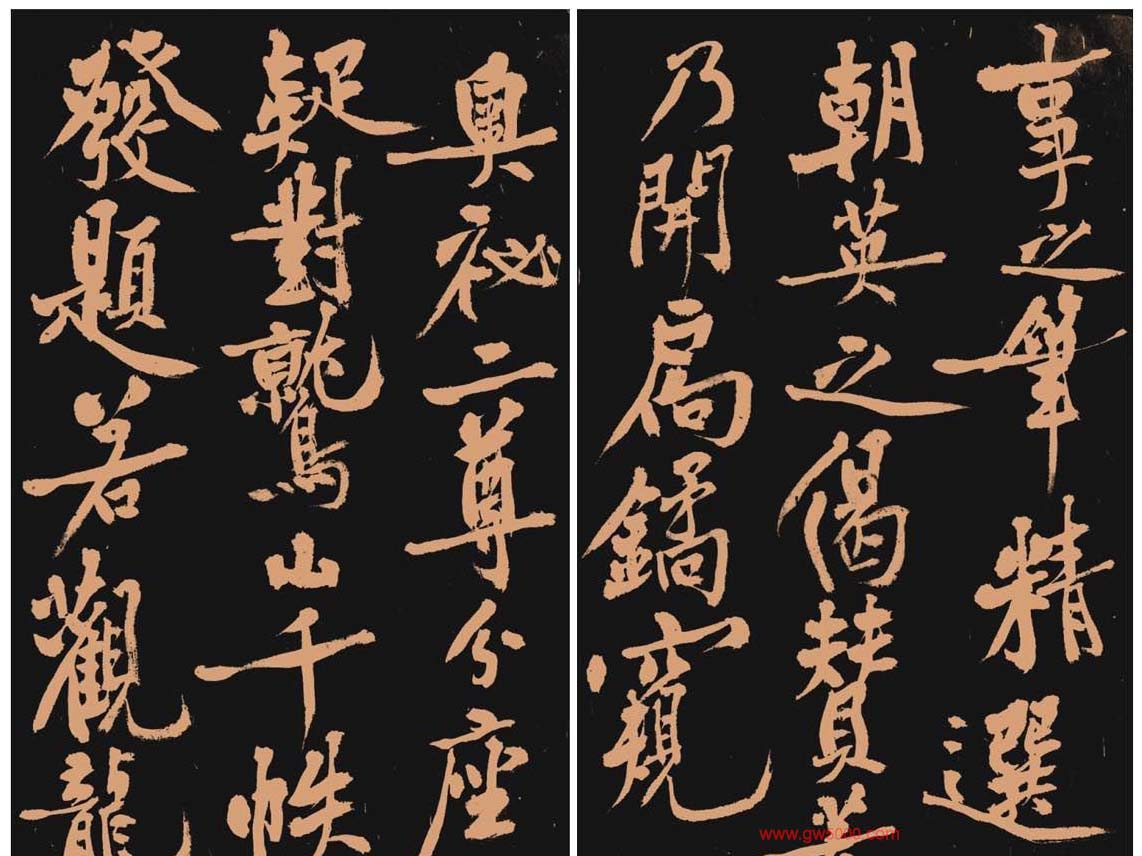 事之筆精選
朝英之偈贊
乃開扃鐍窺
奥祕二尊分座
疑對鷲山千帙
發題若觀龍
www.gw5000.com